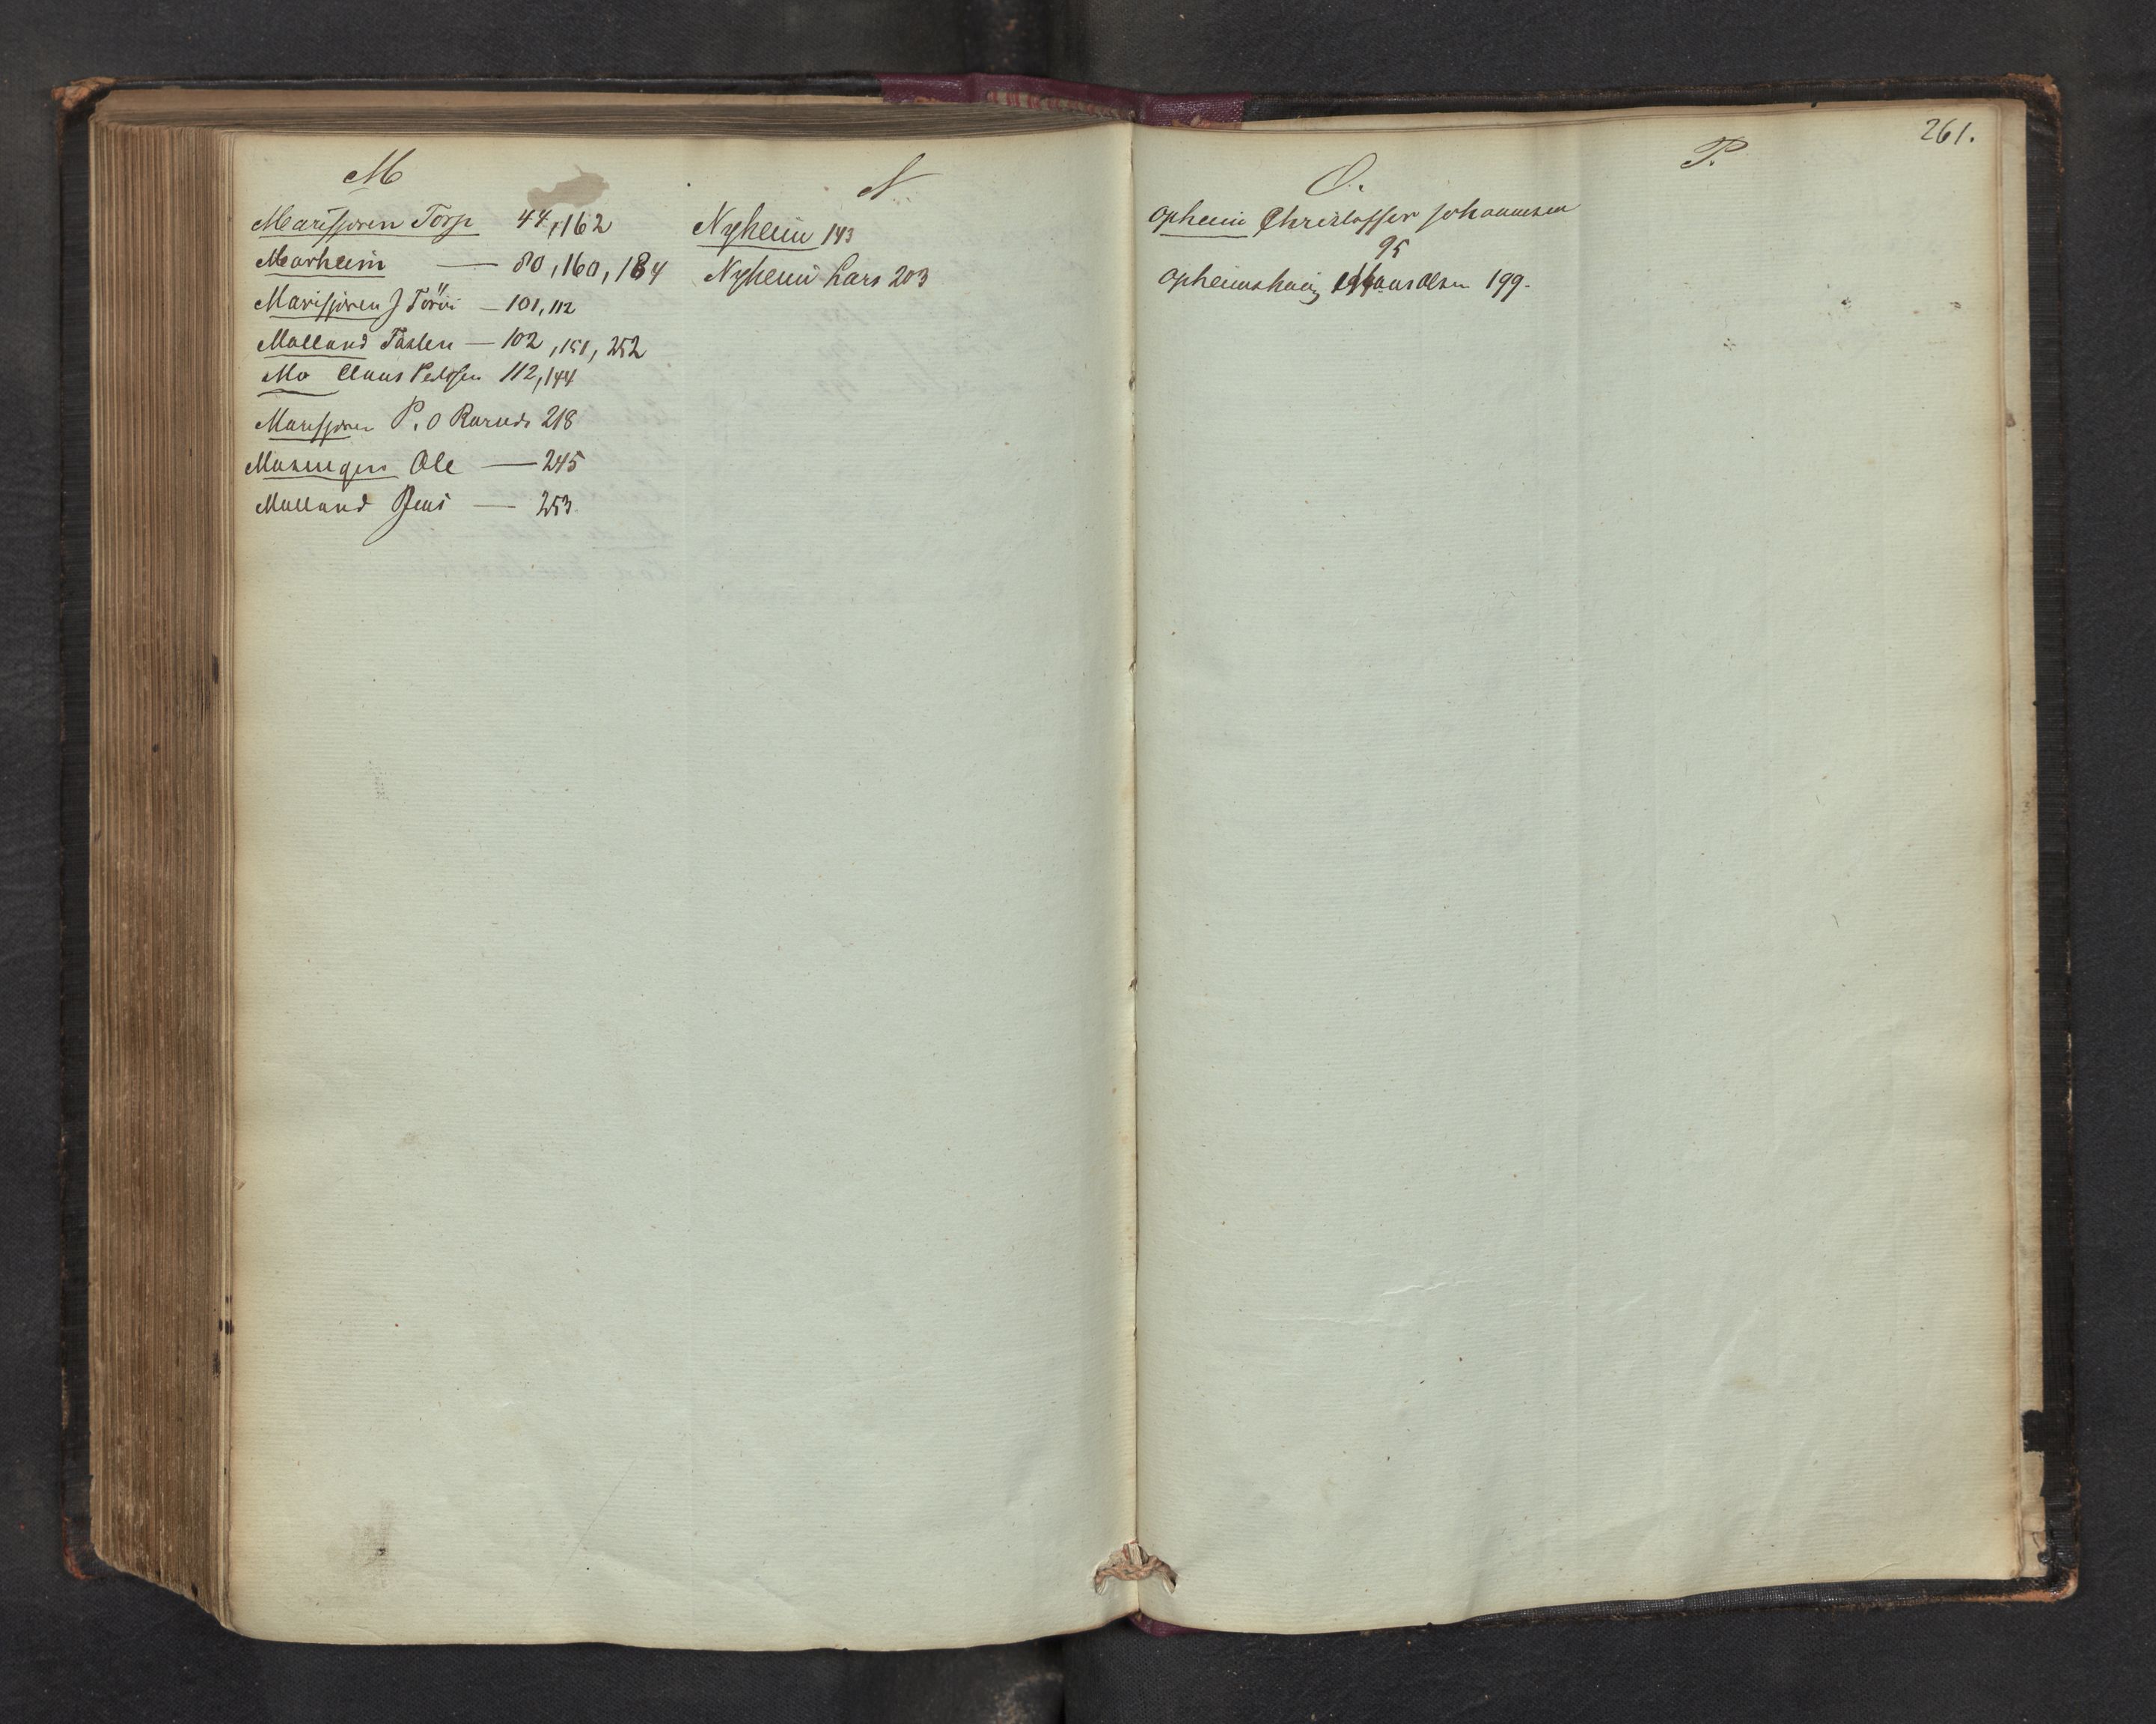 M
Marifjøren Torp 44, 162
Marheim — 80, 160, 184
Marifjøren J Törvi — 101, 112
Molland Taslen — 102, 151, 252
Mo Claus Pedersen 112, 144
Marifjøren P. O 218
Ole — 245
Molland Jens — 253.
N
Nyheim 143
Nyheim Lars 203
O.
Opheim Christoffer Johannesen
95
Opheimshaug Hans Olsen 199.
P.
261.